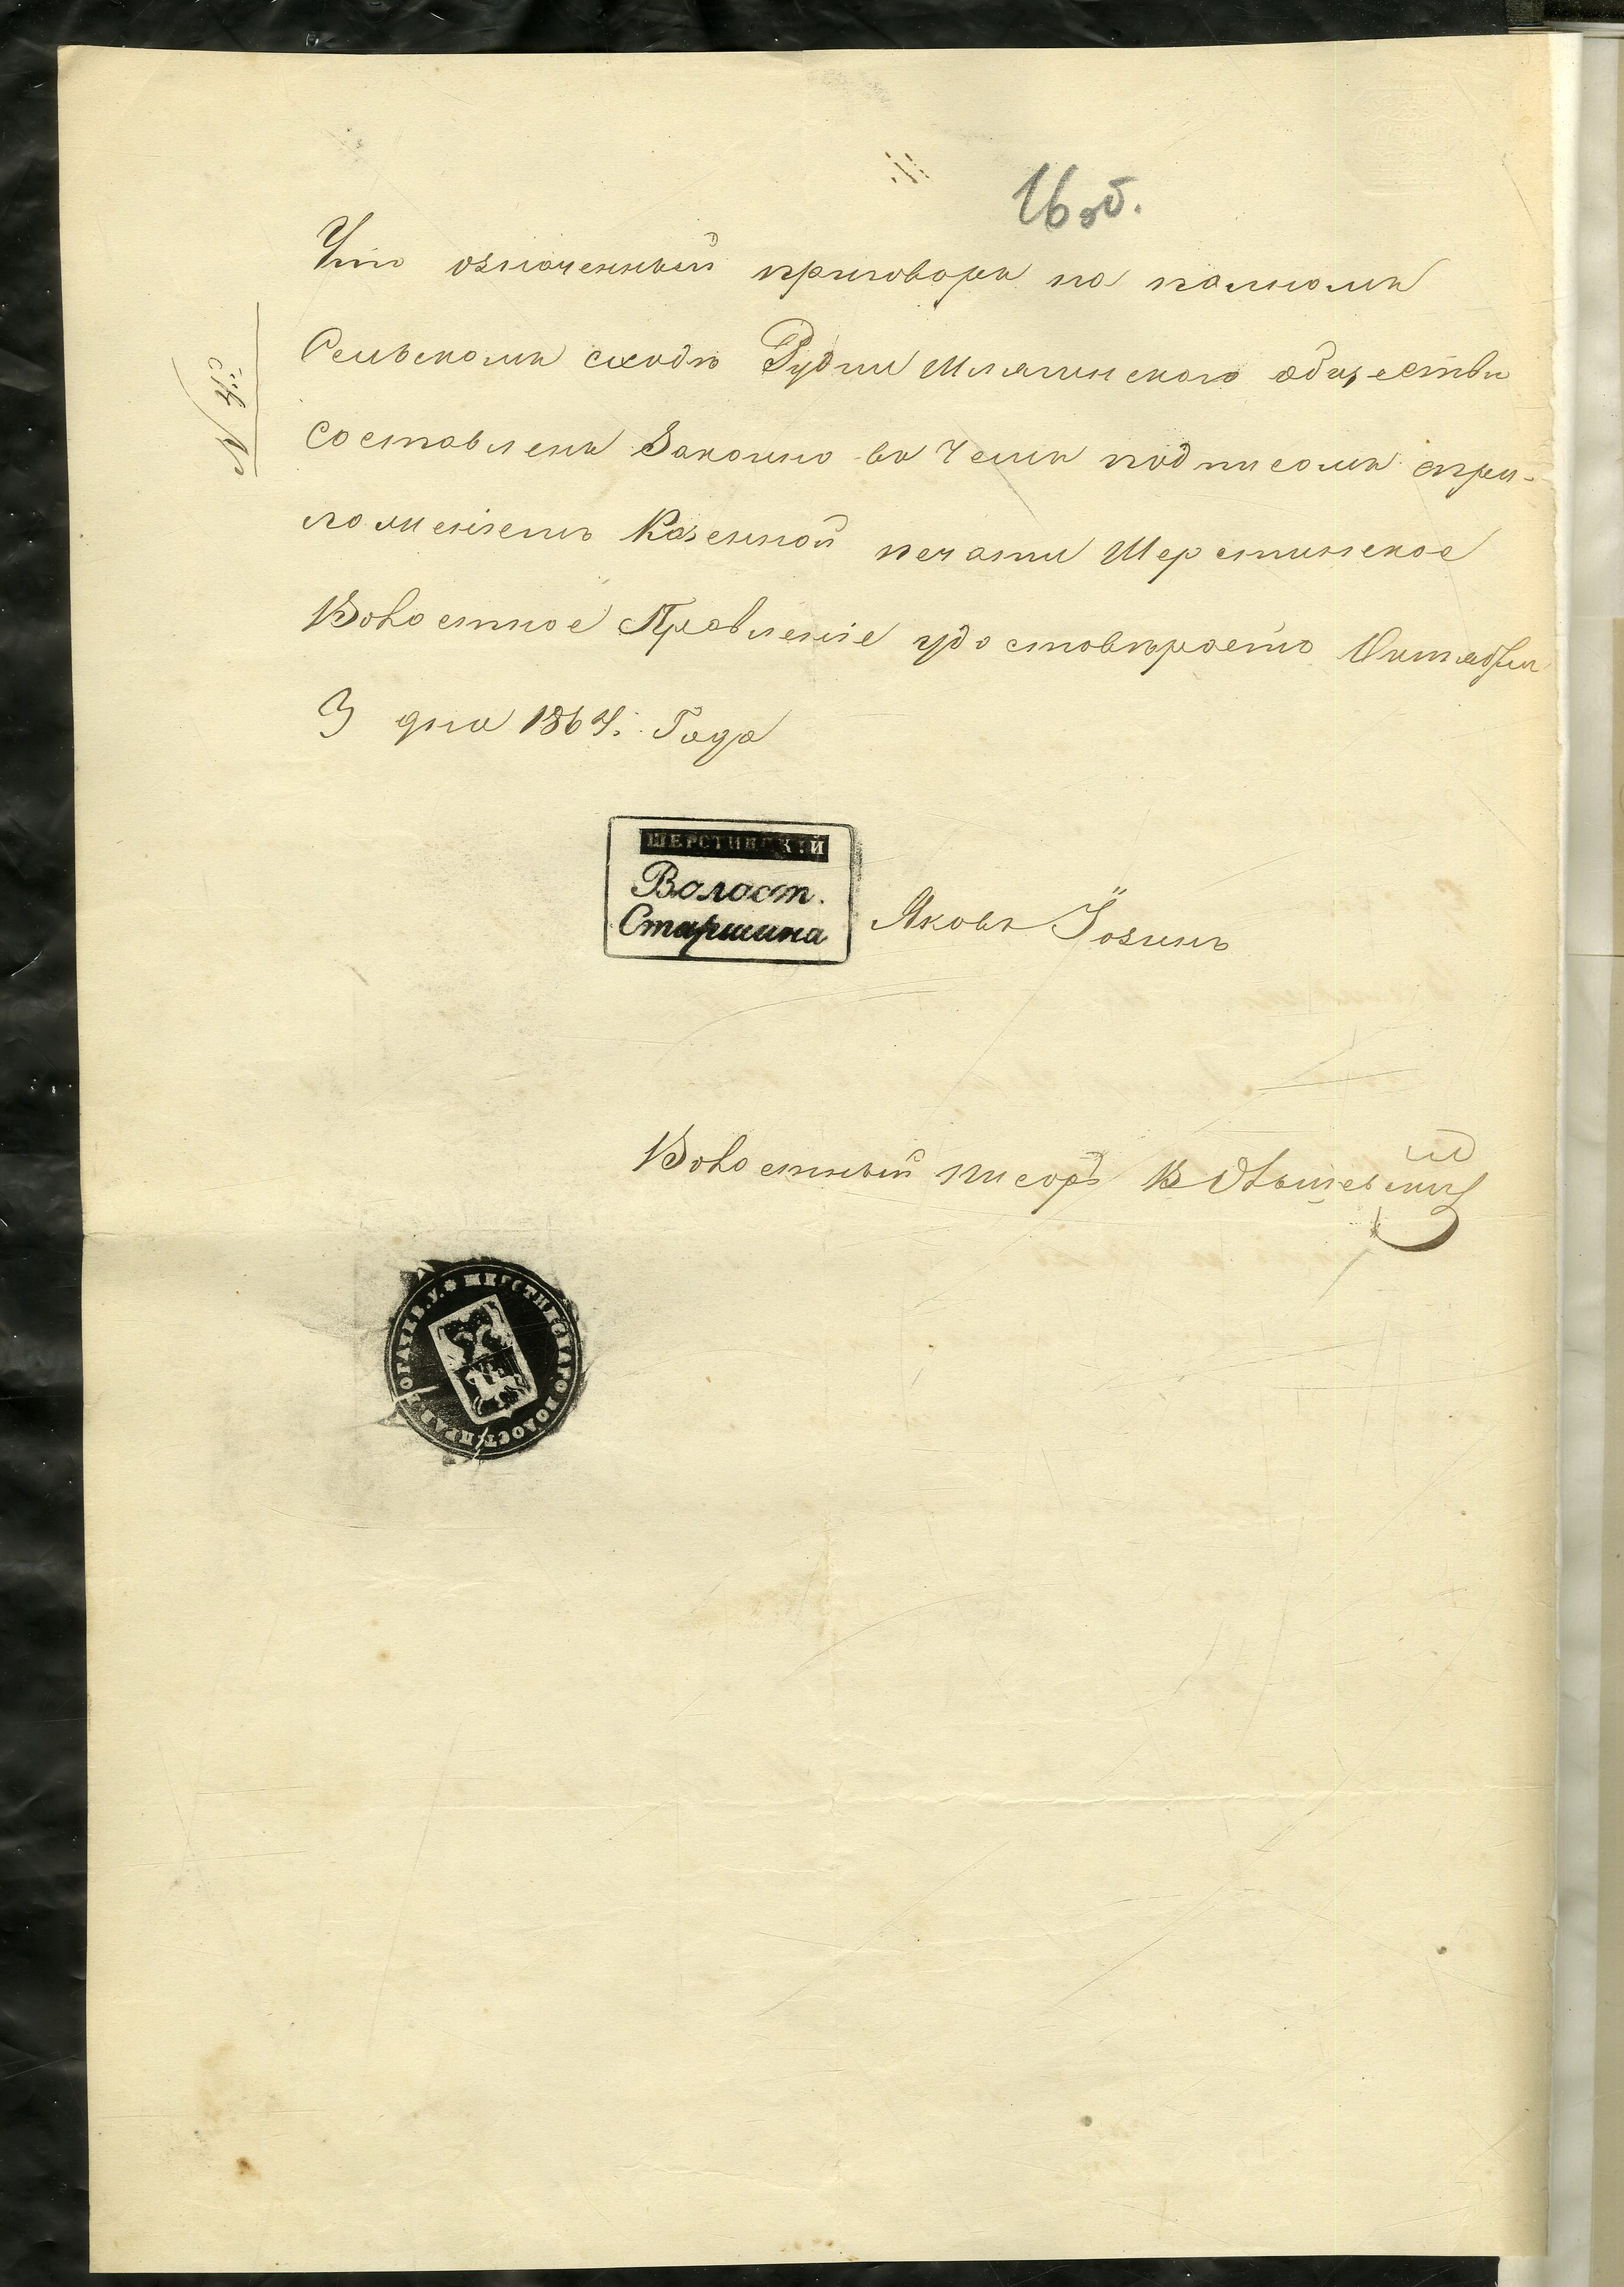 16 об.
Что означенный приговоръ на полномъ
Сельскомъ сходѣ Рудни Шлягинскаго обществѣ
составленъ Законно въ чемъ подписомъ спри-
ложеніемъ Казенной печати Шерстинское
Волостное Правленіе удостовѣряетъ Октября
3 дня 1867. Года
№
ШЕРСТИНСКІЙ
Волост.
Старшина
Яковъ Їозинъ
Волостный писарь В
ШЕРСТИНСКАГО ВОЛОСТ. ПРАВ. РОГАЧЕВ. У.